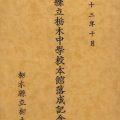 十二年十月
縣立栃木中學校本館落成記念
栃木縣立栃